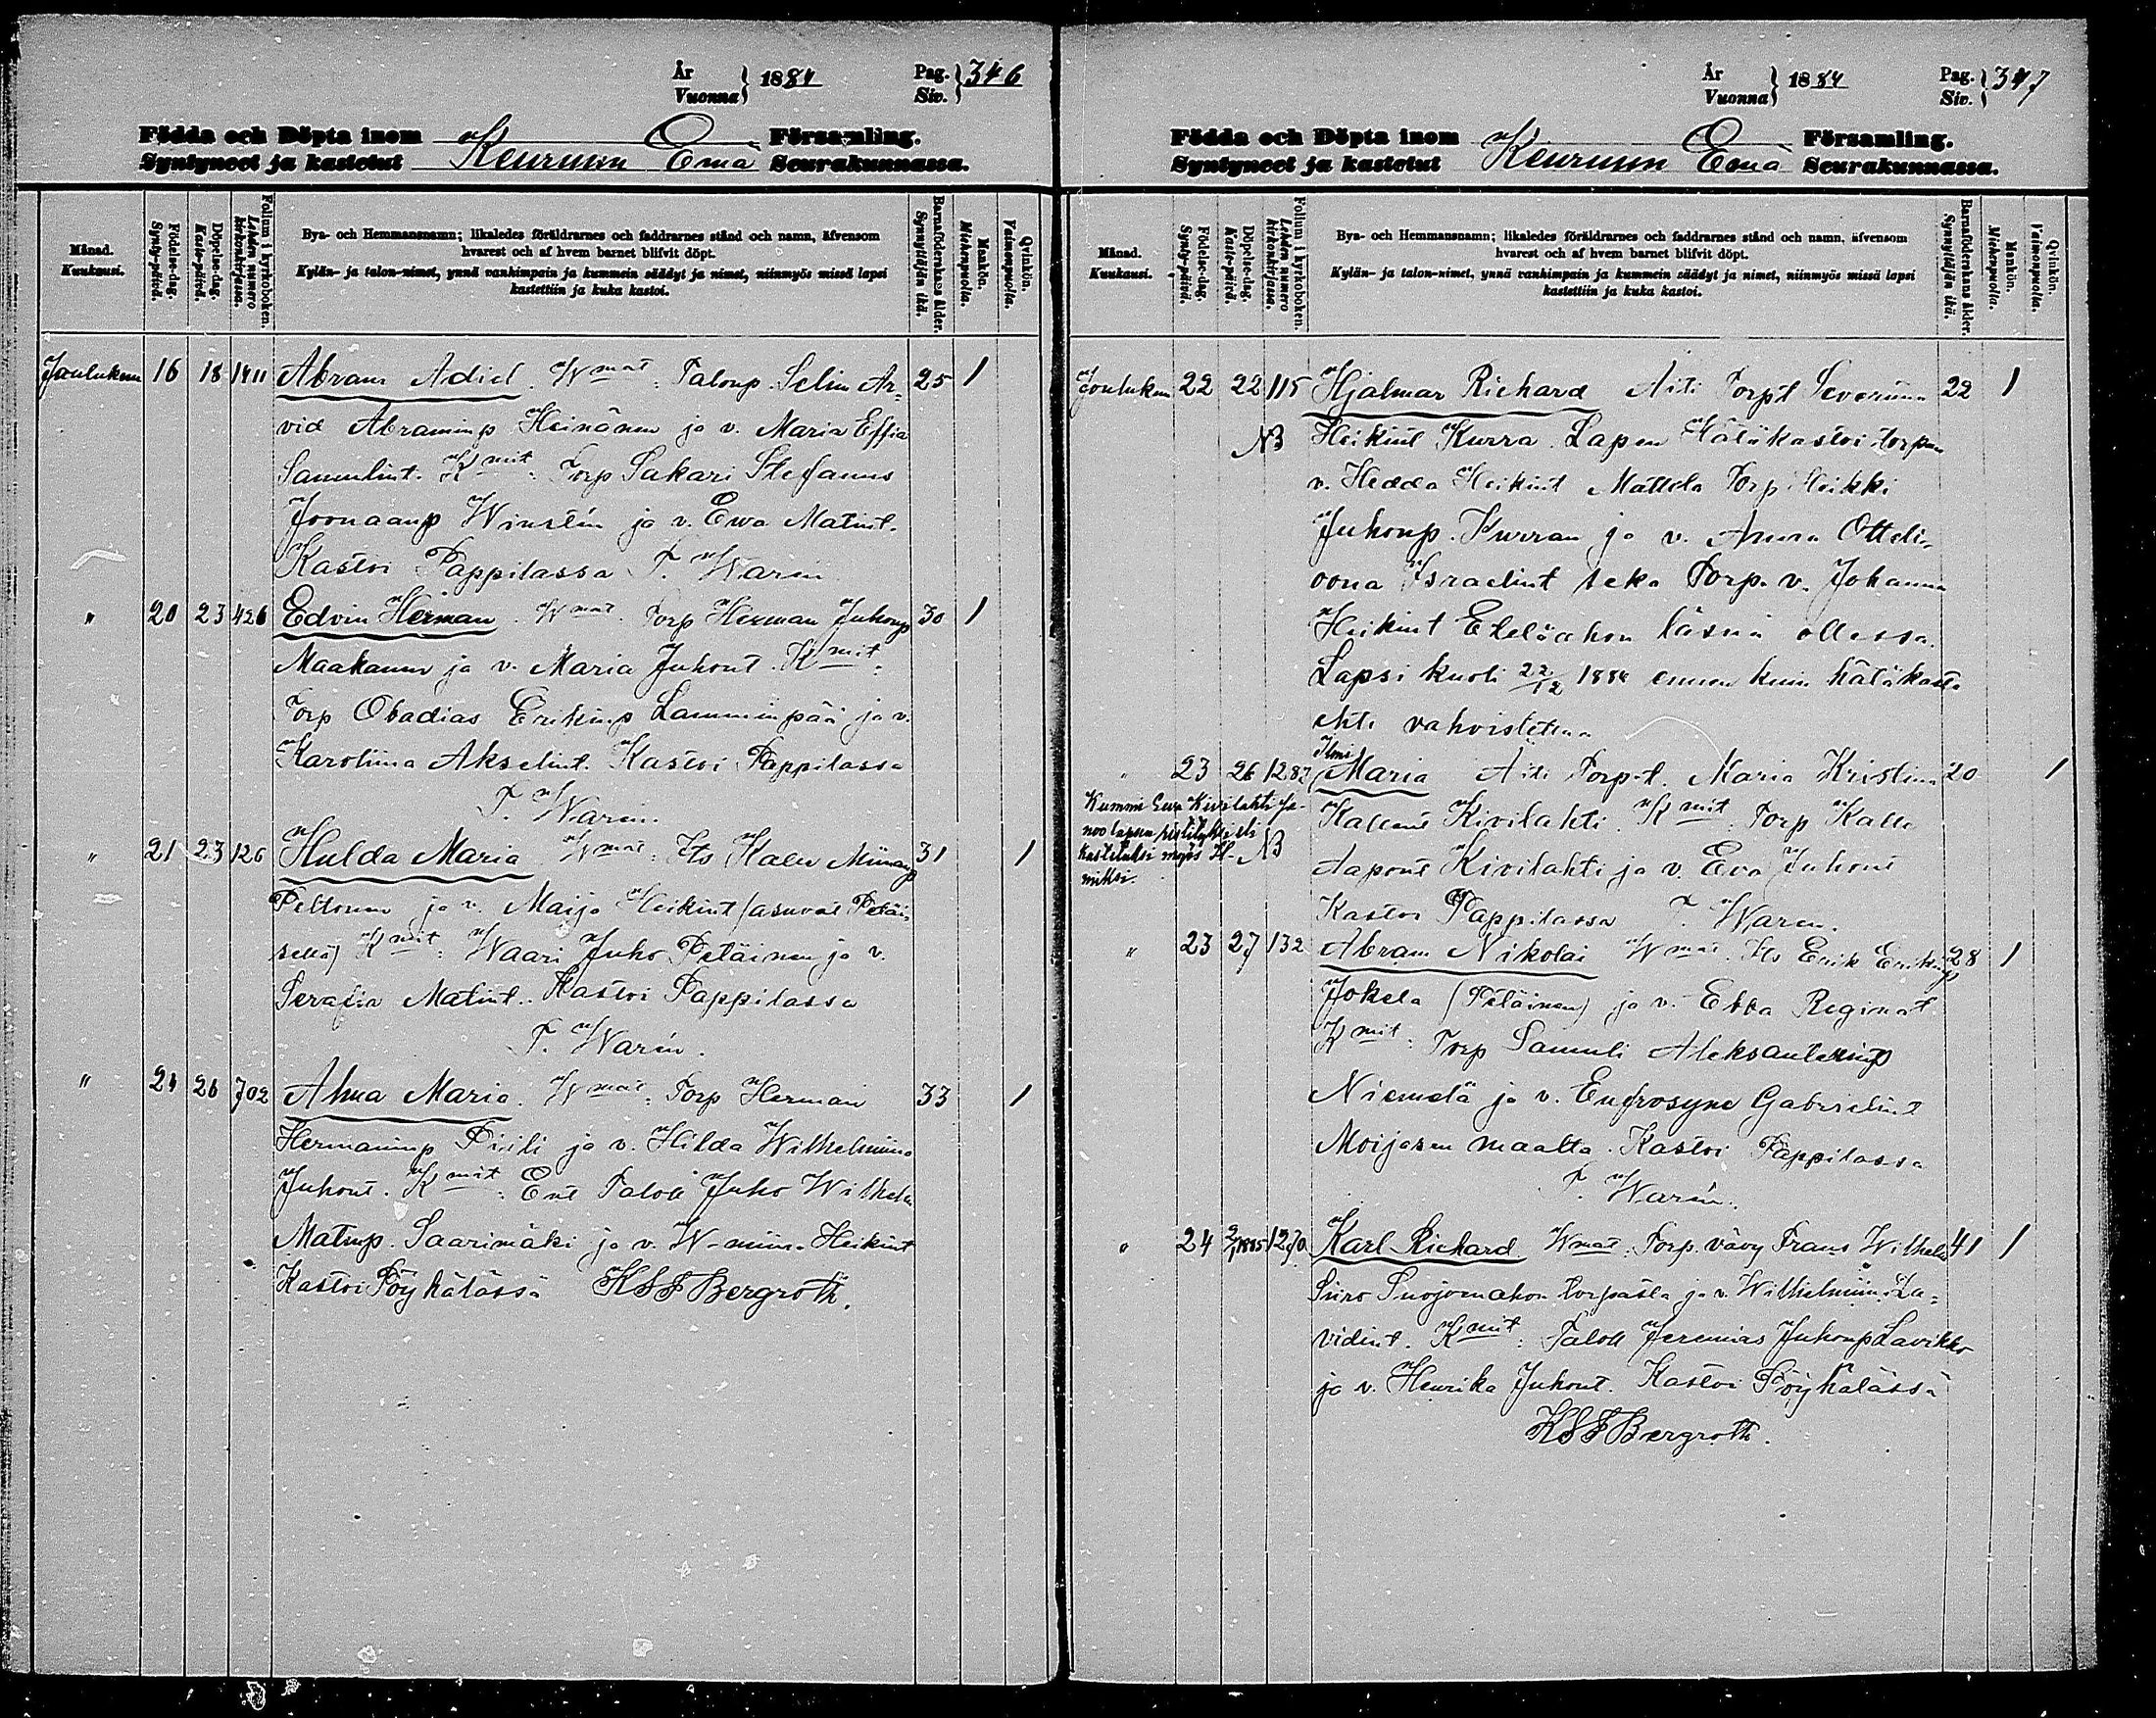 År
Vuonna } 1884 Pag. Siv. } 346
Födda och Döpta inom Församling.
Syntyneet ja kastetut Keuruun Emä Seurakunnassa.
Månad.
Kuukausi.
Födelse-dag.
Synty-päivä.
Döpelse-dag.
Kaste-päivä.
Folium i kyrkoboken.
Lehden numero kirkonkirjassa.
Bya- och Hemmansnamn; likaledes föräldrarnes och faddrarnes stånd och namn, äfvensom
hvarest och af hvem barnet blifvit döpt.
Kylän- ja talon-nimet, ynnä vanhimpain ja kummein säädyt ja nimet, niinmyös missä lapsi
kastettiin ja kuka kastoi.
Barnaföderskans ålder.
Synnyttäjän ikä.
Mankön.
Miehenpuolta.
Qvinkön.
Vaimonpuolta.
Joulukuu 16 18 1411 Abram Adiel. Wmat: Talonp. Selim Ar- 25 1
vid Abraminp Heinänen ja v. Maria Effia
Samulint. Kmit: Torp Sakari Stefanus
Joonaanp Winstén ja v. Ewa Matint.
Kastoi Pappilassa T. Warén
" 20 23 426 Edvin Herman. Wmat. Torp Herman Juhonp 30 1
Maakanen ja v. Maria Juhont. Kmit:
Torp Obadias Erikinp Lamminpää ja v.
Karoliina Akselint. Kastoi Pappilassa
T. Warén.
" 21 23 126 Hulda Maria Wmat: Its Kalle Miinanp 31 1
Peltonen ja v. Maija Heikint (asuvat Petäi-
sellä) Kmit: Waari Juho Petäinen ja v.
Serafia Matint. Kastoi Pappilassa
T. Warén.
" 24 26 702 Alma Maria. Wmat: Torp Herman 33 1
Hermaninp Piili ja v. Hilda Wilhelmiina
Juhont. Kmit: Ent Taloll Juho Wilhelm
Matinp. Saarimäki ja v. W-miina Heikint
Kastoi Pöyhölässä KSF Bergroth.
År
Vuonna } 1884 Pag. Siv. } 347
Födda och Döpta inom Församling.
Syntyneet ja kastetut Keuruun Emä Seurakunnassa.
Månad.
Kuukausi.
Födelse-dag.
Synty-päivä.
Döpelse-dag.
Kaste-päivä.
Folium i kyrkoboken.
Lehden numero kirkonkirjassa.
Bya- och Hemmansnamn; likaledes föräldrarnes och faddrarnes stånd och namn, äfvensom
hvarest och af hvem barnet blifvit döpt.
Kylän- ja talon-nimet, ynnä vanhimpain ja kummein säädyt ja nimet, niinmyös missä lapsi
kastettiin ja kuka kastoi.
Barnaföderskans ålder.
Synnyttäjän ikä.
Mankön.
Miehenpuolta.
Qvinkön.
Vaimonpuolta.
Joulukuu 22 22 115 Hjalmar Richard Äiti Torp.t Severiina 22 1
NB Heikint Kurra. Lapen Hätäkastoi torpan
v. Hedda Heikint Mattila Torp Heikki
Juhonp. Kurran ja v. Anna Otteli-
oona Israelint sekä Torp. v. Johanna
Heikint Eteläahon läsnä ollessa.
Lapsi kuoli 22/12 1884 ennen kuin hätäkaste
ehti vahvistetuu
Ilmi
" 23 26 1287 Maria Äiti Torp.t. Maria Kristiina 20 1
Kummi Eva Kivilahti sa-
noo lapsen ristityksi eli
kastetuksi myös Il- NB
miksi.
Kallent Kivilahti. Kmit: Torp Kalle
Aapont Kivilahti ja v. Eva Juhont
Kastoi Pappilassa T. Warén.
" 23 27 132 Abram Nikolai Wmat. Its Erik Erikinp 28 1
Jokela (Petäinen) ja v. Ebba Reginat
Kmit: Torp Samuli Aleksanterinp
Niemelä ja v. Eufrosyne Gabrielint
Moijasen maalta. Kastoi Pappilassa
T. Warén.
" 24 2/1 1885 1270 Karl Richard Wmat. Torp. vävy Frans Wilhelm 41 1
Siiro Suojomahon torpasta ja v. Wilhelmiina Da-
vidint. Kmit: Taloll Jeremias Juhonp Lavikko
ja v. Henrika Juhont. Kastoi Pöyhölässä
KSF Bergroth.